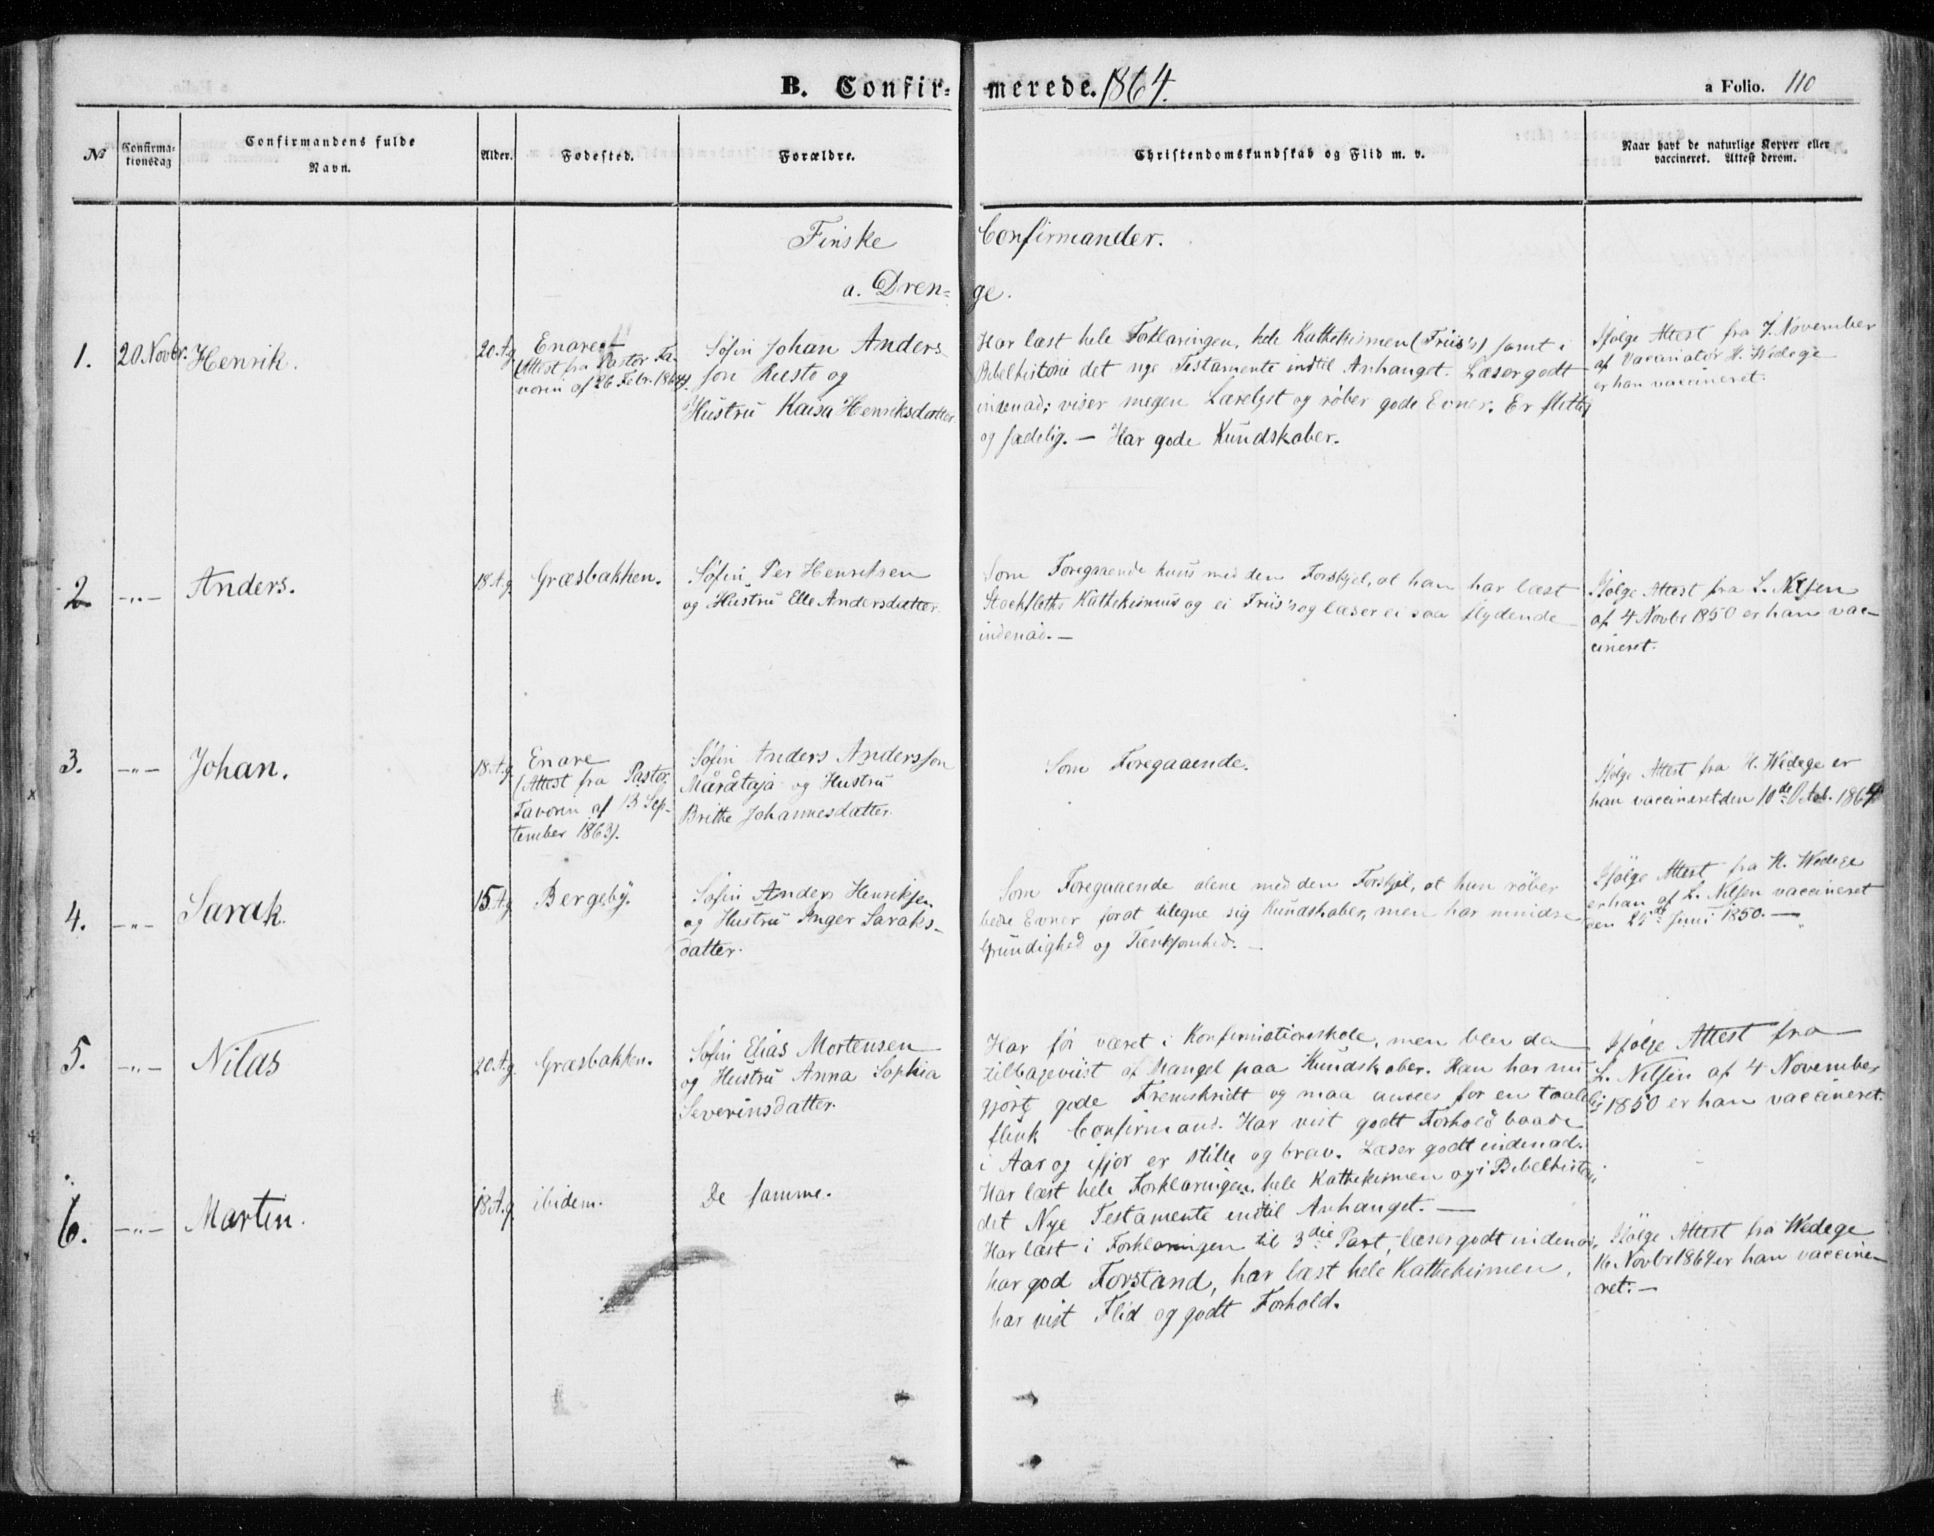 B. Confirmerede. 1864.
a Folio. 110
No
Confirmationsdag
Confirmandens fulde Navn.
Alder.
Fødested.
Forældre.
Christendomskundskab og Flid m. v.
Naar havt de naturlige Kopper eller vaccineret. Attest derom.
Finske Confirmander.
a. Drenge.
1.
20. Novbr.
Henrik.
20 A. g.
Enare
(Attest fra Pastor Fa-
vorin af 26 Febr. 1864).
Søfin Johan Anders-
son Ruste og
Hustru Kaisa Henriksdatter
Har læst hele Forklaringen, hele Kathekismen (Friis's) samt i
Bibelhistorie det nye Testamente indtil Anhanget. Læser godt
indenad; viser megen Lærelyst og røber gode Evner. Er flittig
og sædelig. — Har gode Kundskaber.
Ifølge Attest fra 7. November
af Vaccinatør H. Wedege
er han vaccineret.
2
-"-
Anders.
18 A. g.
Græsbakken.
Søfin Per Henriksen
og Hustru Elle Andersdatter.
Som Foregaaende kuns med den Forskjel, at han har læst
Stockfleths Kathekismus og ei Friis's og læser ei saa flydende
indenad. —
Ifølge Attest fra L. Nilsen
af 4 Novbr 1850 er han vac-
cineret.
3.
-"-
Johan.
18 A. g.
Enare
(Attest fra Pastor
Favorin af 13 Sep-
tember 1863).
Søfin Anders Andersson
Måråtaja og Hustru
Britte Johannesdatter.
Som Foregaaende.
Ifølge Attest fra H. Wedege er
han vaccineret den 10de Octob. 1864
4.
-"-
Sarak.
15 A. g.
Bergeby.
Søfin Anders Henriksen
og Hustru Inger Saraks-
datter.
Som Foregaaende alene med den Forskjel, at han røber
bedre Evner forat tilegne sig Kundskaber, men har mindre
Grundighed og Tænksomhed. —
Ifølge Attest fra H. Wedege
er han af L. Nilsen vaccineret
den 25de Juni 1850. —
5.
-"-
Nilas
20 A. g.
Græsbakken.
Søfin Elias Mortensen
og Hustru Anna Sophia
Severinsdatter.
Har før været i Konfirmationsskole, men blev da
tilbageviist af Mangel paa Kundskaber. Han har nu
gjort gode Fremskridt og maa ansees for en taalelig
flink Confirmand. Har vist godt Forhold baade
i Aar og ifjor er stille og brav. Læser godt indenad.
Har læst hele Forklaringen, hele Kathekismen og i Bibelhistorie
det Nye Testamente indtil Anhanget. —
Ifølge Attest fra
L. Nilsen af 4 November
1850 er han vaccineret.
6.
-"-
Martin.
18 A. g.
ibidem.
De samme.
Har læst i Forklaringen til 3die Part, læser godt indenad,
har god Forstand, har læst hele Kathekismen,
har vist Flid og godt Forhold.
Ifølge Attest fra Wedege
16 Novbr 1864 er han vaccine-
ret. —